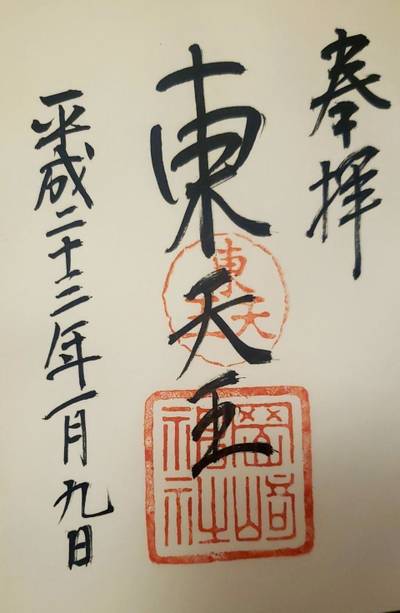 奉拝
東天王
東天王
岡崎神社
平成二十三年一月九日